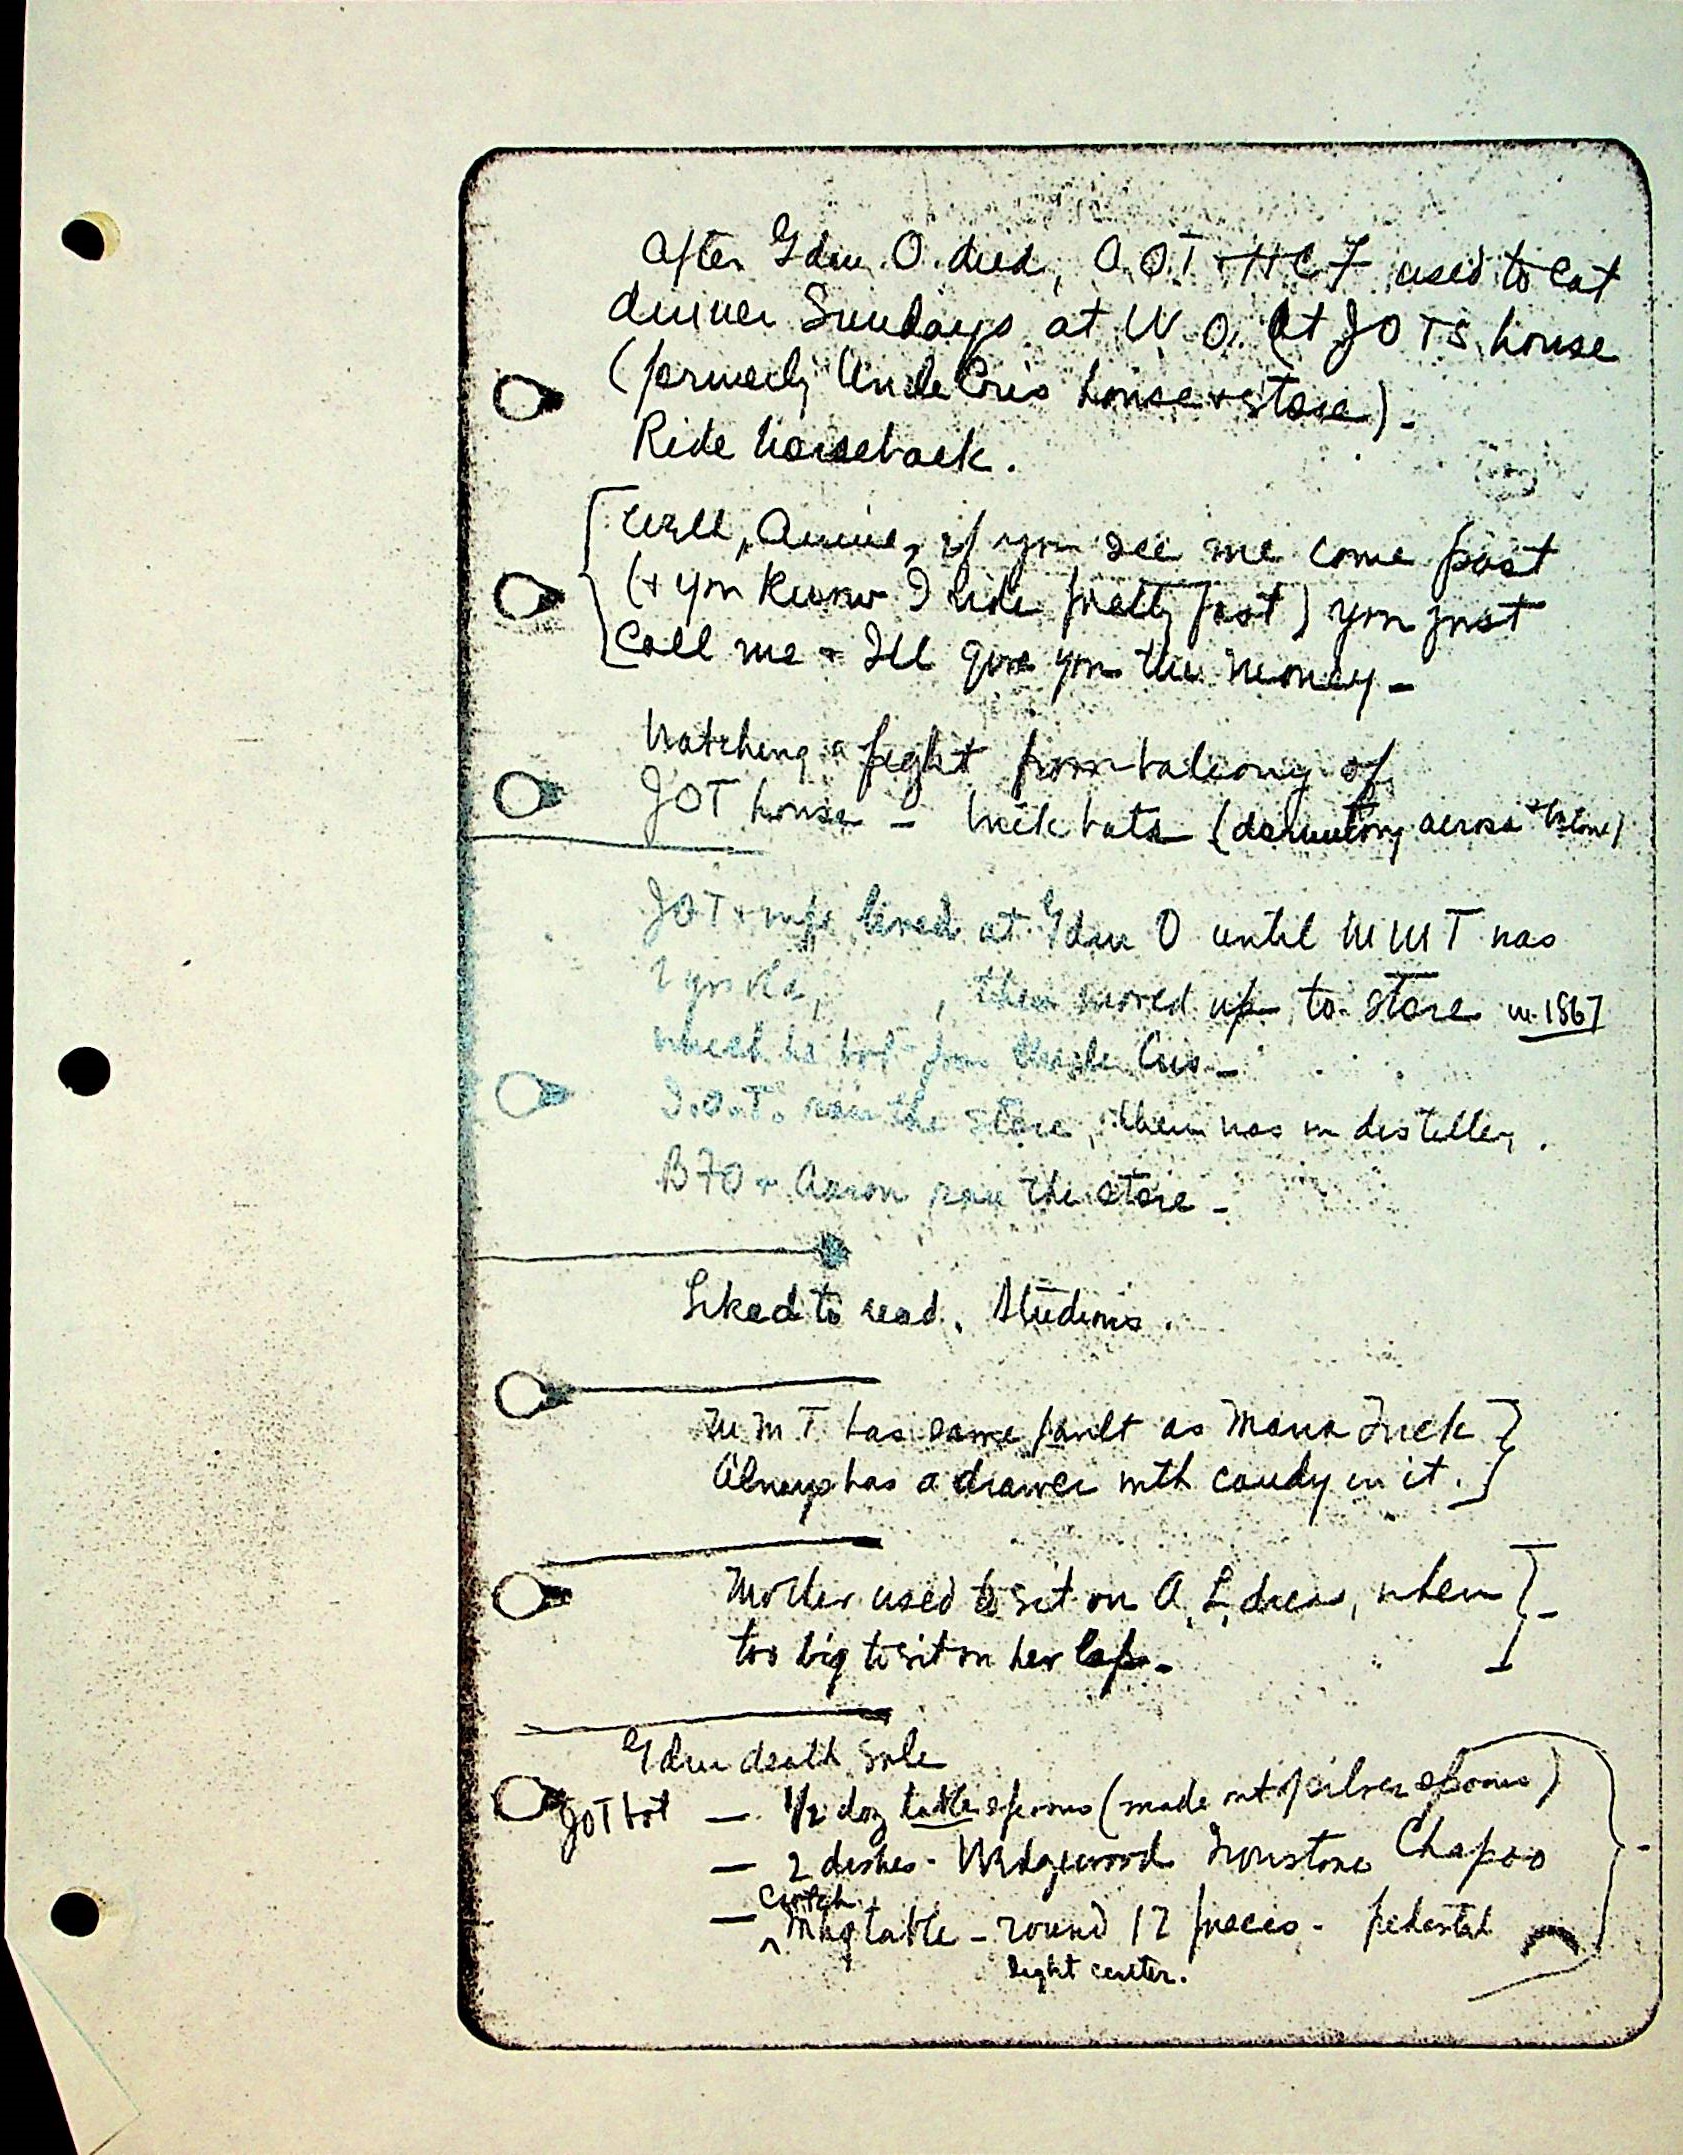 After Gdm. O. died, A.O.T + H C F used to eat
dinner Sundays at W.O. (at JOTs house
(formerly Uncle Cris house + store).
Ride horseback.
Well, Annie, if you see me come past
(+ you know I ride pretty fast) you just
call me + Ill give you the money -
Watching a fight from balcony of
JOT house - brick bats (dormitory across
JOT + wife lived at Gdm O until MMT was
2 yrs old, , then moved up to store in 1867
which he bot from Uncle Cris -
J.O.T. ran the store, then was in distillery.
BFO + Aaron ran the store -
Liked to read. Studious.
MMT has same fault as Mana Tuck
Always has a drawer with candy in it.
Mother used to sit on A.L. dress, when
too big to sit on her lap -
Gdm death sale
JOT bot — 1/2 doz table spoons (made out of silver spoons)
— 2 dishes - Wedgewood Ironstone Chapoo
— Mhg table - round 17 pieces - pedestal
light center.